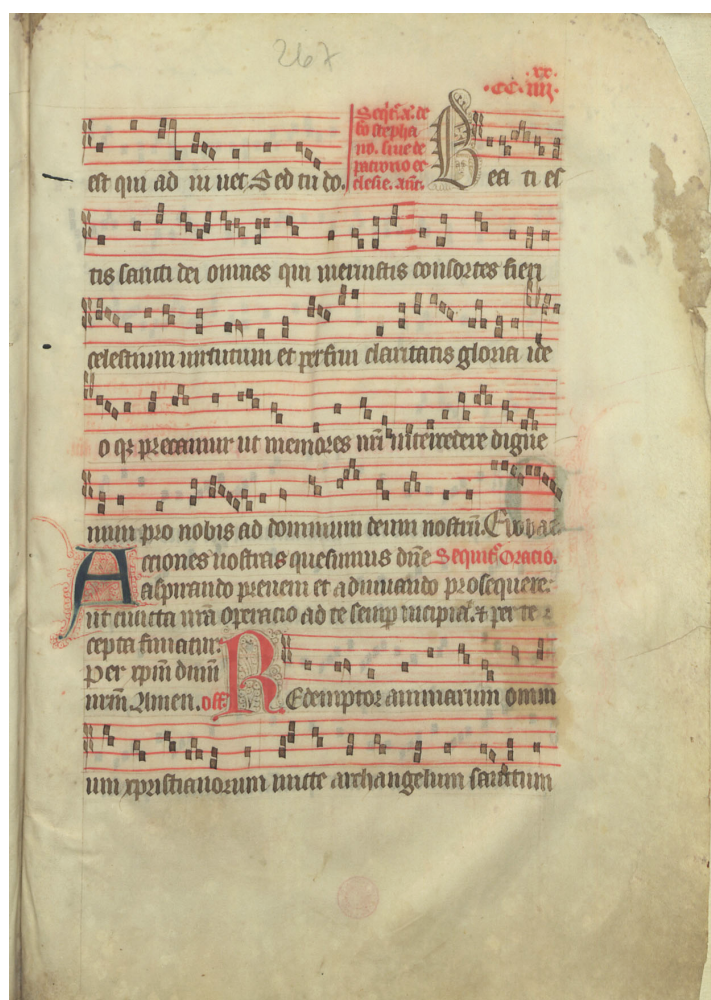 267
.xx.
.CC.iiii.
est qui ad iu uet. Sed tu do.
Sequit̄ a᷑. de
bo stepha
no. siue de
ecclesie. an̄t.
Bea ti es
tis sancti dei omnes qui meruistis consortes fieri
celestium uirtutum et perfrui claritatis gloria ide
o q᷑ precamur ut memores nr̄i intercedere digne
mini pro nobis ad dominum deum nostrū. Euouae
Acciones nostras quesumus dn̄e Sequit̄ Oracio.
aspirando preueni et adiuuando prosequere:
ut cuncta nr̄a operacio a te semp̄ incipiat. & per te
cepta finiatur.
Per xp̄m dn̄m
nr̄m. Amen. off̄
Redemptor animarum omni
um xpristianorum mitte archangelum sanctum